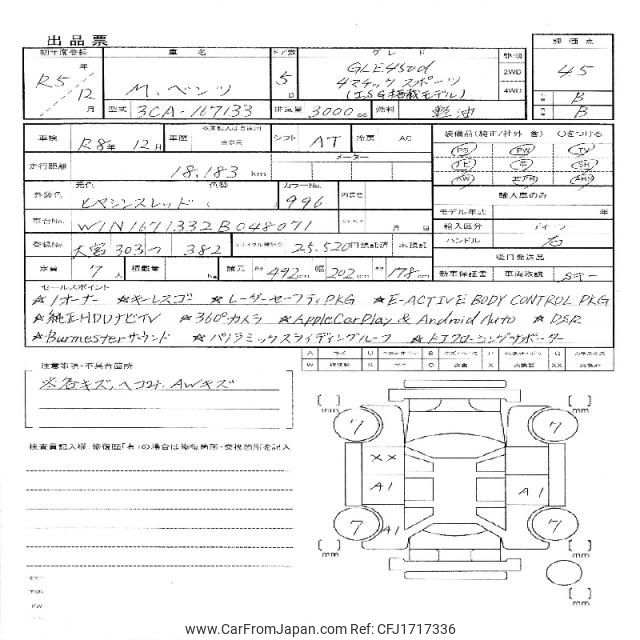 出品票
初年度登録 車名 ドア数 グレード 駆動 評価点
R5年12月 M.ベンツ 5D GLE450d 2WD 4WD 4.5
4マチック スポーツ
(ISG搭載モデル) B
型式 3CA-167133 排気量 3000cc 燃料 軽油 B
車検 R8年12月 車歴 シフト AT 冷房 AC 装備品(純正/社外 含)○をつける
PS PW TV
走行距離 18,183 km メーター SR
AW エアB
外装色 元色 色替 カラーNo. 内装色 輸入車のみ
ヒヤシンスレッド ( 996 モデル年式 年
車台No. W1N1671332B048071 月 日 輸入区分 ディーラ
登録No. 大宮303つ 382 25,520円 預託済 未預託 ハンドル 右
後日発送品
定員 7人 積載量 kg 諸元 長さ 492cm 幅 202cm 178cm 新車保証書 車両取説 Sキー
セールスポイント
☆1オーナー ☆キーレスゴー ☆レーダーセーフティPKG ☆E-ACTIVE BODY CONTROL PKG
☆純正HDDナビTV ☆360°カメラ ☆AppleCarPlay & Android Auto ☆DSR
☆Burmesterサウンド ☆パノラミックスライディングルーフ ☆ドアクロージングサポーター
注意事項・不具合箇所
※各キズ、ヘコミナ、AWキズ
検査員記入欄・修復歴「有」の場合は修復箇所・交換箇所を記入
[ ]mm [ ]mm
7 7
XX
A1 A1
7 A1 7
[ ]mm [ ]mm
[ ]mm
www.CarFromJapan.com REF CFJ1717336